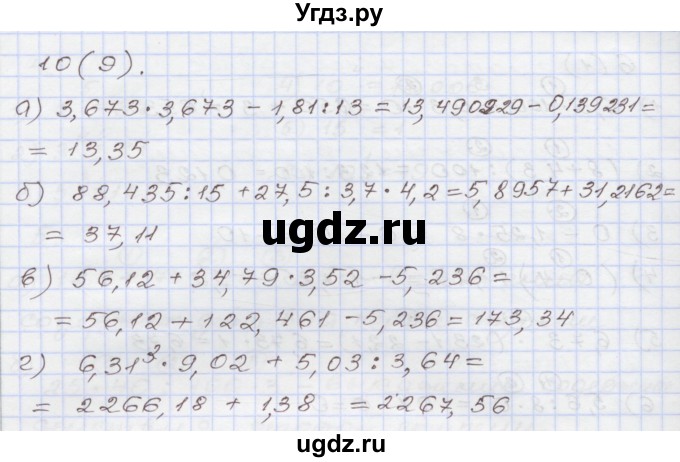 Угдз.ру
10(9).
а) 3,673·3,673 - 1,81:13 = 13,490929 - 0,139231 =
= 13,35
б) 88,435:15 + 27,5 : 3,7 · 4,2 = 5,8957 + 31,2162 =
= 37,11
ugdz.ru
в) 56,12 + 34,79·3,52 - 5,236 =
= 56,12 + 122,461 - 5,236 = 173,34
г) 6,31³ · 9,02 + 5,03 : 3,64 =
= 2266,18 + 1,38 = 2267,56
ugdz.ru